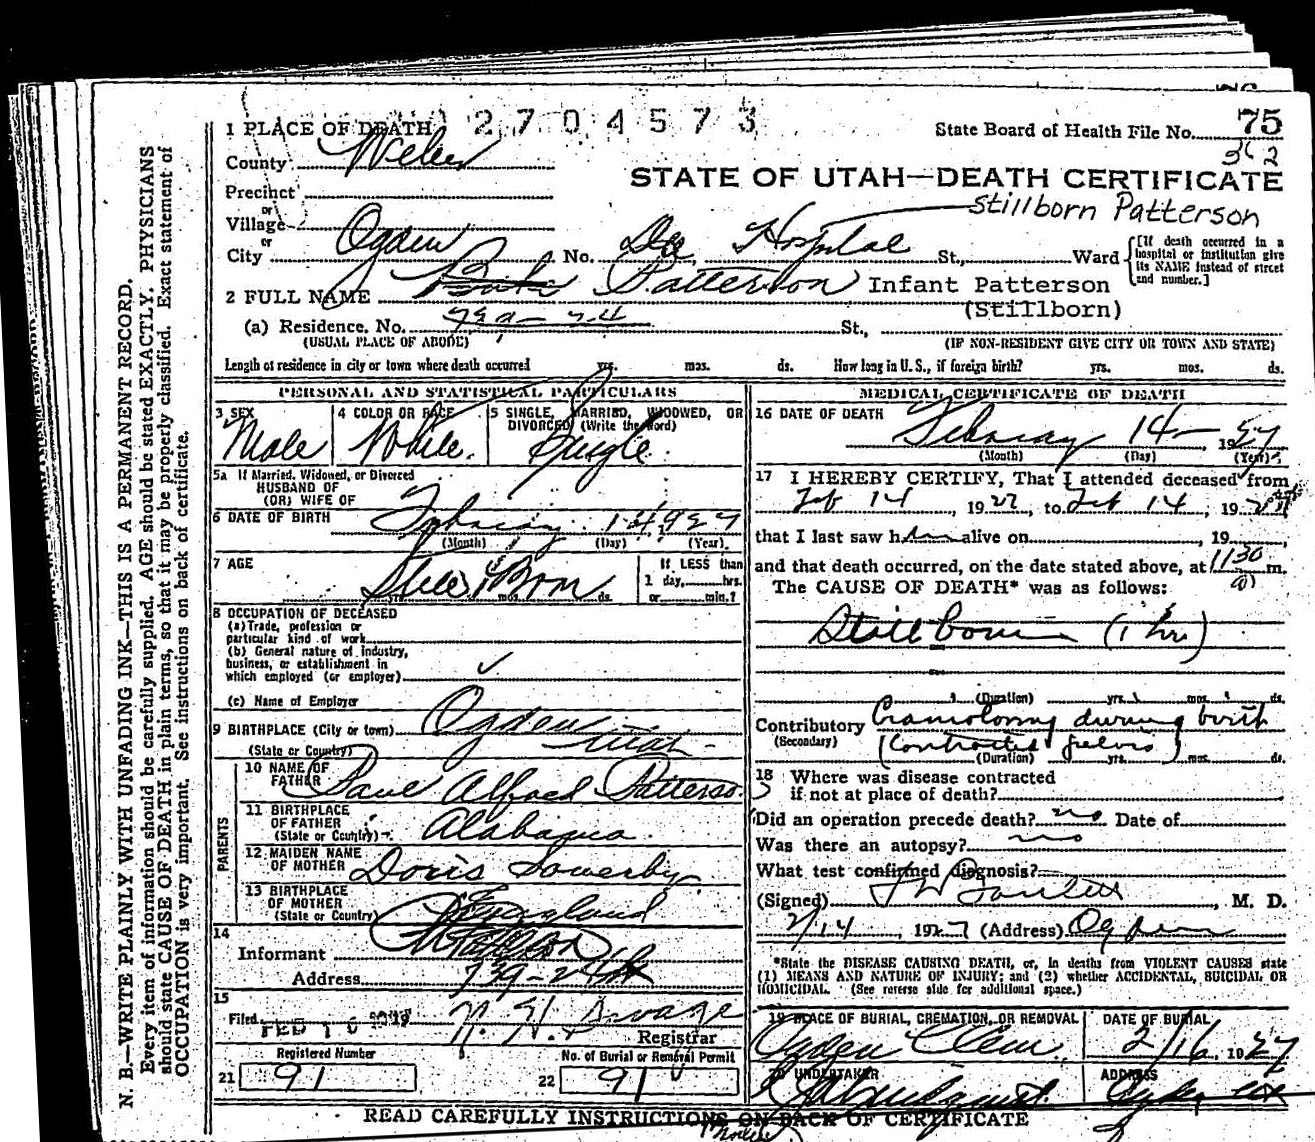 2 7 0 4 5 7 3
State Board of Health File No. 75
362
1 PLACE OF DEATH
County Weber
STATE OF UTAH—DEATH CERTIFICATE
Precinct
or
Village
Stillborn Patterson
or
City Ogden No. Dee Hospital St., Ward
[If death occurred in a hospital or institution give its NAME instead of street and number.]
2 FULL NAME Patterson Infant Patterson
(Stillborn)
(a) Residence. No. St.,
(USUAL PLACE OF ABODE) (IF NON-RESIDENT GIVE CITY OR TOWN AND STATE)
Length of residence in city or town where death occurred yrs. mos. ds. How long in U. S., if foreign birth? yrs. mos. ds.
PERSONAL AND STATISTICAL PARTICULARS
3 SEX 4 COLOR OR RACE 5 SINGLE, MARRIED, WIDOWED, OR
DIVORCED (Write the word)
Male White. Single.
5a If Married, Widowed, or Divorced
HUSBAND OF
(OR) WIFE OF
6 DATE OF BIRTH February 14 1927
(Month) (Day) (Year)
7 AGE If LESS than
1 day, hrs.
Still Born mos. ds. or min.?
8 OCCUPATION OF DECEASED
(a) Trade, profession or
particular kind of work
(b) General nature of industry,
business, or establishment in
which employed (or employer)
(c) Name of Employer
9 BIRTHPLACE (City or town) Ogden
(State or Country) Utah
PARENTS
10 NAME OF
FATHER Paul Alfred Patterson
11 BIRTHPLACE
OF FATHER
(State or Country) Alabama
12 MAIDEN NAME
OF MOTHER Doris Sowerby
13 BIRTHPLACE
OF MOTHER
(State or Country) England
14
Informant
Address 739-24th
15
Filed FEB 16 1927
Registrar
Registered Number No. of Burial or Removal Permit
21 91 22 91
MEDICAL CERTIFICATE OF DEATH
16 DATE OF DEATH
February 14 1927
(Month) (Day) (Year)
17 I HEREBY CERTIFY, That I attended deceased from
Feb 14, 1927, to Feb 14, 19
that I last saw h alive on , 19
and that death occurred, on the date stated above, at 1130 m.
The CAUSE OF DEATH* was as follows:
Stillborn (1 hr)
(Duration) yrs. mos. ds.
Contributory Craniotomy during birth
(Secondary) (Contracted pelvis)
(Duration) yrs. mos. ds.
18 Where was disease contracted
if not at place of death?
Did an operation precede death? no Date of
Was there an autopsy? no
What test confirmed diagnosis?
(Signed) , M. D.
2/14, 1927 (Address) Ogden
*State the DISEASE CAUSING DEATH, or, in deaths from VIOLENT CAUSES state
(1) MEANS AND NATURE OF INJURY; and (2) whether ACCIDENTAL, SUICIDAL OR
HOMICIDAL. (See reverse side for additional space.)
19 PLACE OF BURIAL, CREMATION, OR REMOVAL DATE OF BURIAL
Ogden Cem. 2/16, 1927
20 UNDERTAKER ADDRESS
READ CAREFULLY INSTRUCTIONS ON BACK OF CERTIFICATE
N. B.—WRITE PLAINLY WITH UNFADING INK—THIS IS A PERMANENT RECORD.
Every item of information should be carefully supplied. AGE should be stated EXACTLY. PHYSICIANS
should state CAUSE OF DEATH in plain terms, so that it may be properly classified. Exact statement of
OCCUPATION is very important. See instructions on back of certificate.